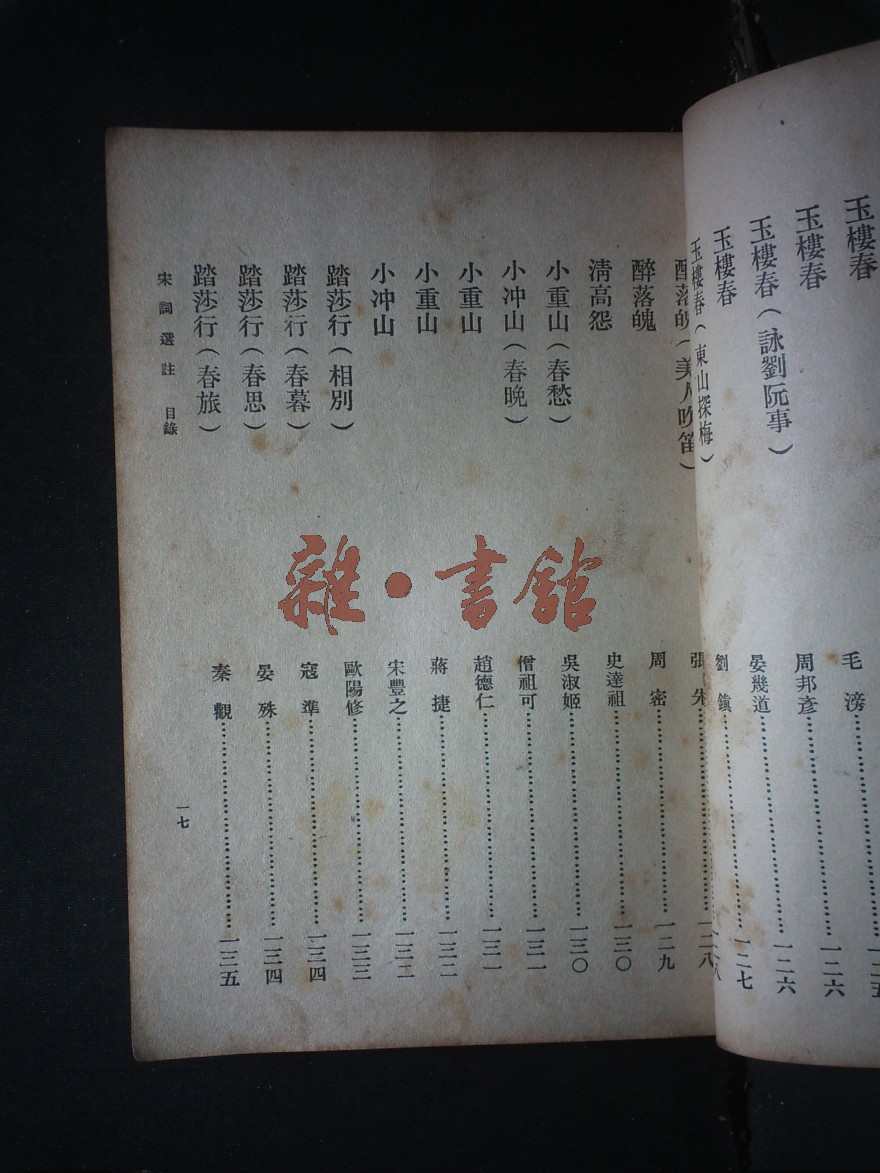 玉樓春
玉樓春 毛滂 一二五
玉樓春（詠劉阮事） 周邦彥 一二六
玉樓春 晏幾道 一二六
玉樓春（東山探梅） 劉鎮 一二七
醉落魄（美人吹笛） 張先 一二八
醉落魄 周密 一二九
淸高怨 史達祖 一三〇
小重山（春愁） 吳淑姬 一三〇
小冲山（春晚） 僧祖可 一三一
小重山 趙德仁 一三一
小重山 蔣捷 一三二
小冲山 宋豐之 一三二
踏莎行（相別） 歐陽修 一三三
踏莎行（春暮） 寇準 一三四
踏莎行（春思） 晏殊 一三四
踏莎行（春旅） 秦觀 一三五
宋詞選註 目錄 一七
雜·書館